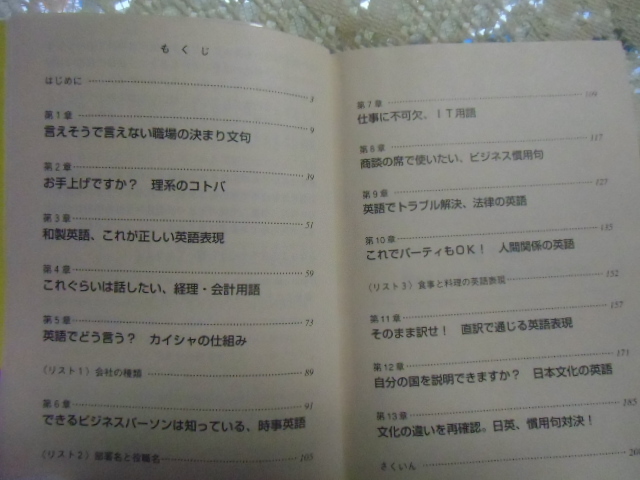 もくじ
はじめに 3
第1章
言えそうで言えない職場の決まり文句 9
第2章
お手上げですか？ 理系のコトバ 39
第3章
和製英語、これが正しい英語表現 51
第4章
これぐらいは話したい、経理・会計用語 59
第5章
英語でどう言う？ カイシャの仕組み 73
〈リスト1〉会社の種類 89
第6章
できるビジネスパーソンは知っている、時事英語 91
〈リスト2〉部署名と役職名 105
第7章
仕事に不可欠、IT用語
第8章
商談の席で使いたい、ビジネス慣用句 117
第9章
英語でトラブル解決、法律の英語 127
第10章
これでパーティもOK！ 人間関係の英語 135
〈リスト3〉食事と料理の英語表現 152
第11章
そのまま訳せ！ 直訳で通じる英語表現 157
第12章
自分の国を説明できますか？ 日本文化の英語 171
第13章
文化の違いを再確認。日英、慣用句対決！ 185
さくいん